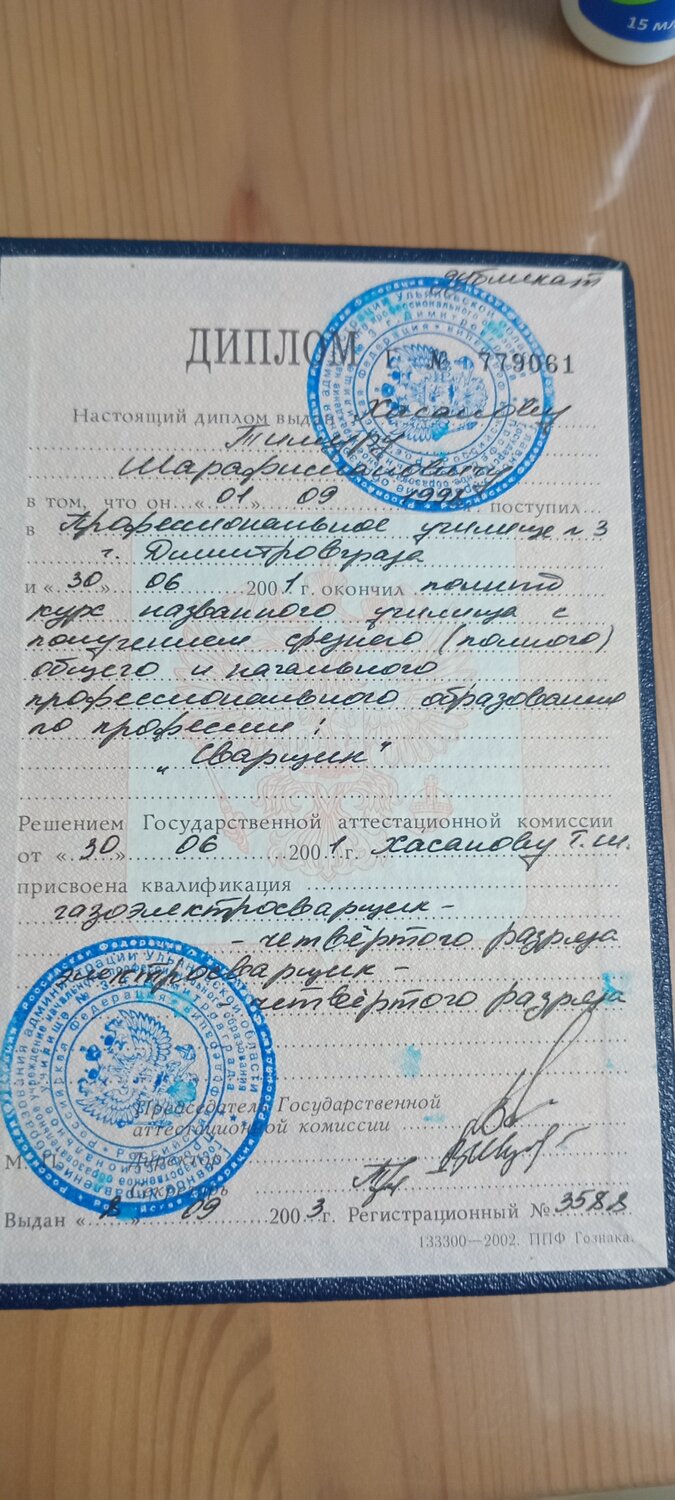 15 мл
дубликат
ДИПЛОМ Г № 779061
Настоящий диплом выдан Хасанову
Тимуру
в том, что он «01» 09 поступил
в Профессиональное училище № 3
г. Димитровграда
и «30» 06 2001 г. окончил полный
курс названного училища с
получением среднего (полного)
общего и начального
профессионального образования
по профессии:
"Сварщик"
Решением Государственной аттестационной комиссии
от «30» 06 2001 г. Хасанову Т.Ш.
присвоена квалификация
газоэлектросварщик -
- четвёртого разряда
электросварщик -
четвёртого разряда
Председатель Государственной
аттестационной комиссии
М. П. Директор
Секретарь
Выдан « » 09 2003 г. Регистрационный № 3588
133300—2002. ППФ Гознака.